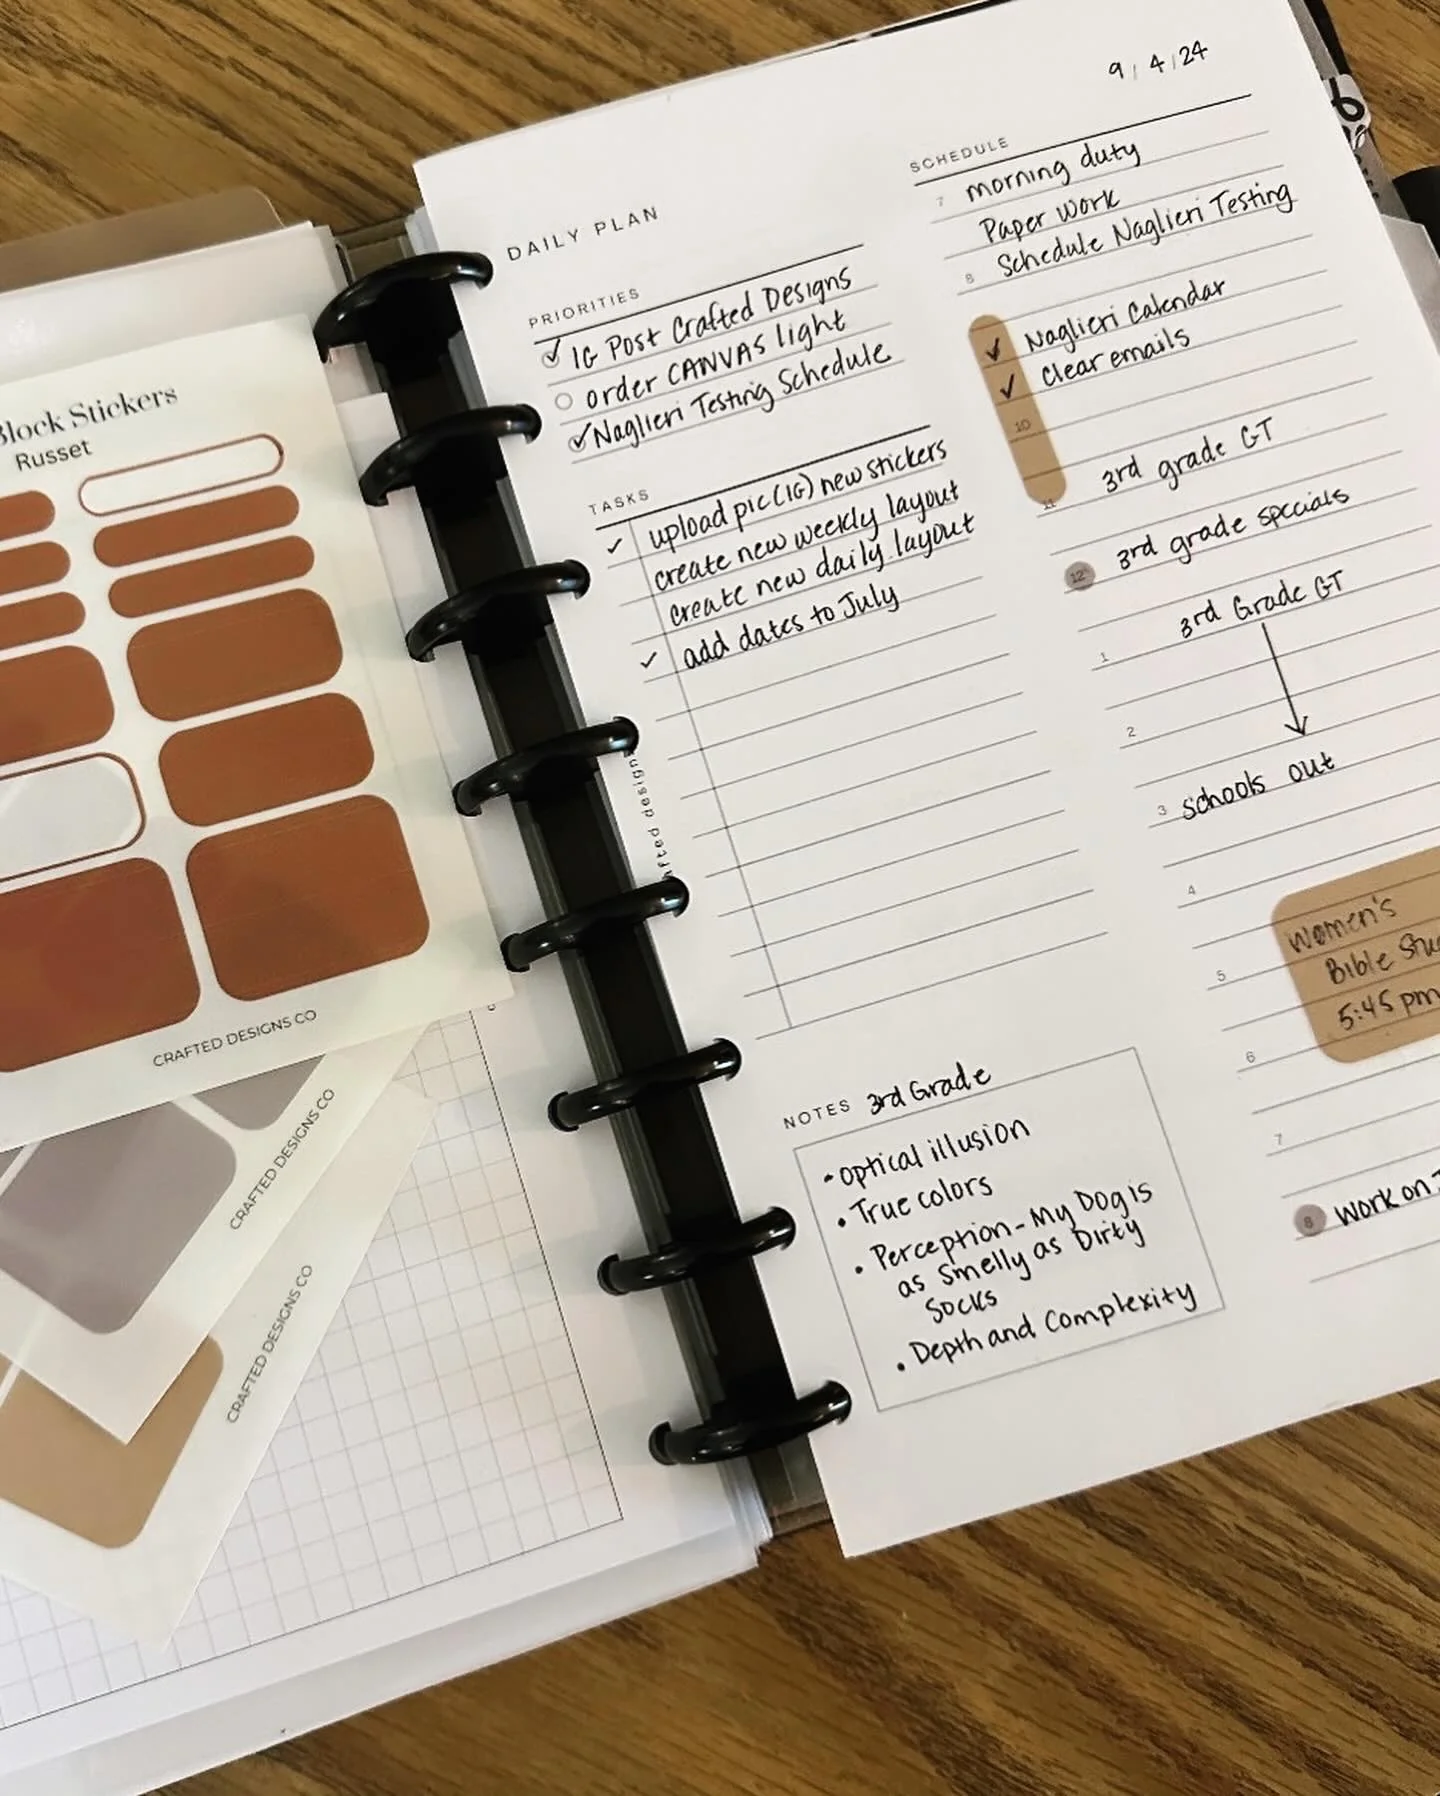 Block Stickers
Russet
CRAFTED DESIGNS CO
CRAFTED DESIGNS CO
CRAFTED DESIGNS CO
9/4/24
DAILY PLAN
PRIORITIES
IG Post Crafted Designs
order CANVAS light
Naglieri Testing Schedule
TASKS
upload pic (IG) new stickers
create new weekly layout
create new daily layout
add dates to July
afted designs
NOTES 3rd Grade
• optical illusion
• True colors
• Perception - My Dog is
as Smelly as Dirty
Socks
• Depth and Complexity
SCHEDULE
7 morning duty
Paper Work
8 Schedule Naglieri Testing
Naglieri Calendar
Clear emails
10
11 3rd grade GT
12 3rd grade specials
3rd Grade GT
1
2
3 schools out
4
Women's
5 Bible
5:45 pm
6
7
8 work on